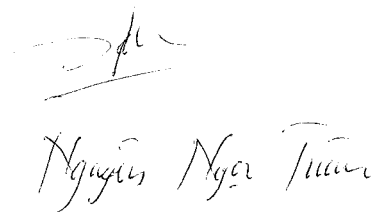 Nguyễn Ngọc Tuân